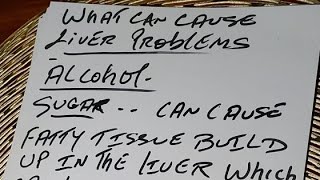 WHAT CAN CAUSE
LIVER PROBLEMS
ALCOHOL.
SUGAR -- CAN CAUSE
FATTY TISSUE BUILD
UP IN THE LIVER WHICH